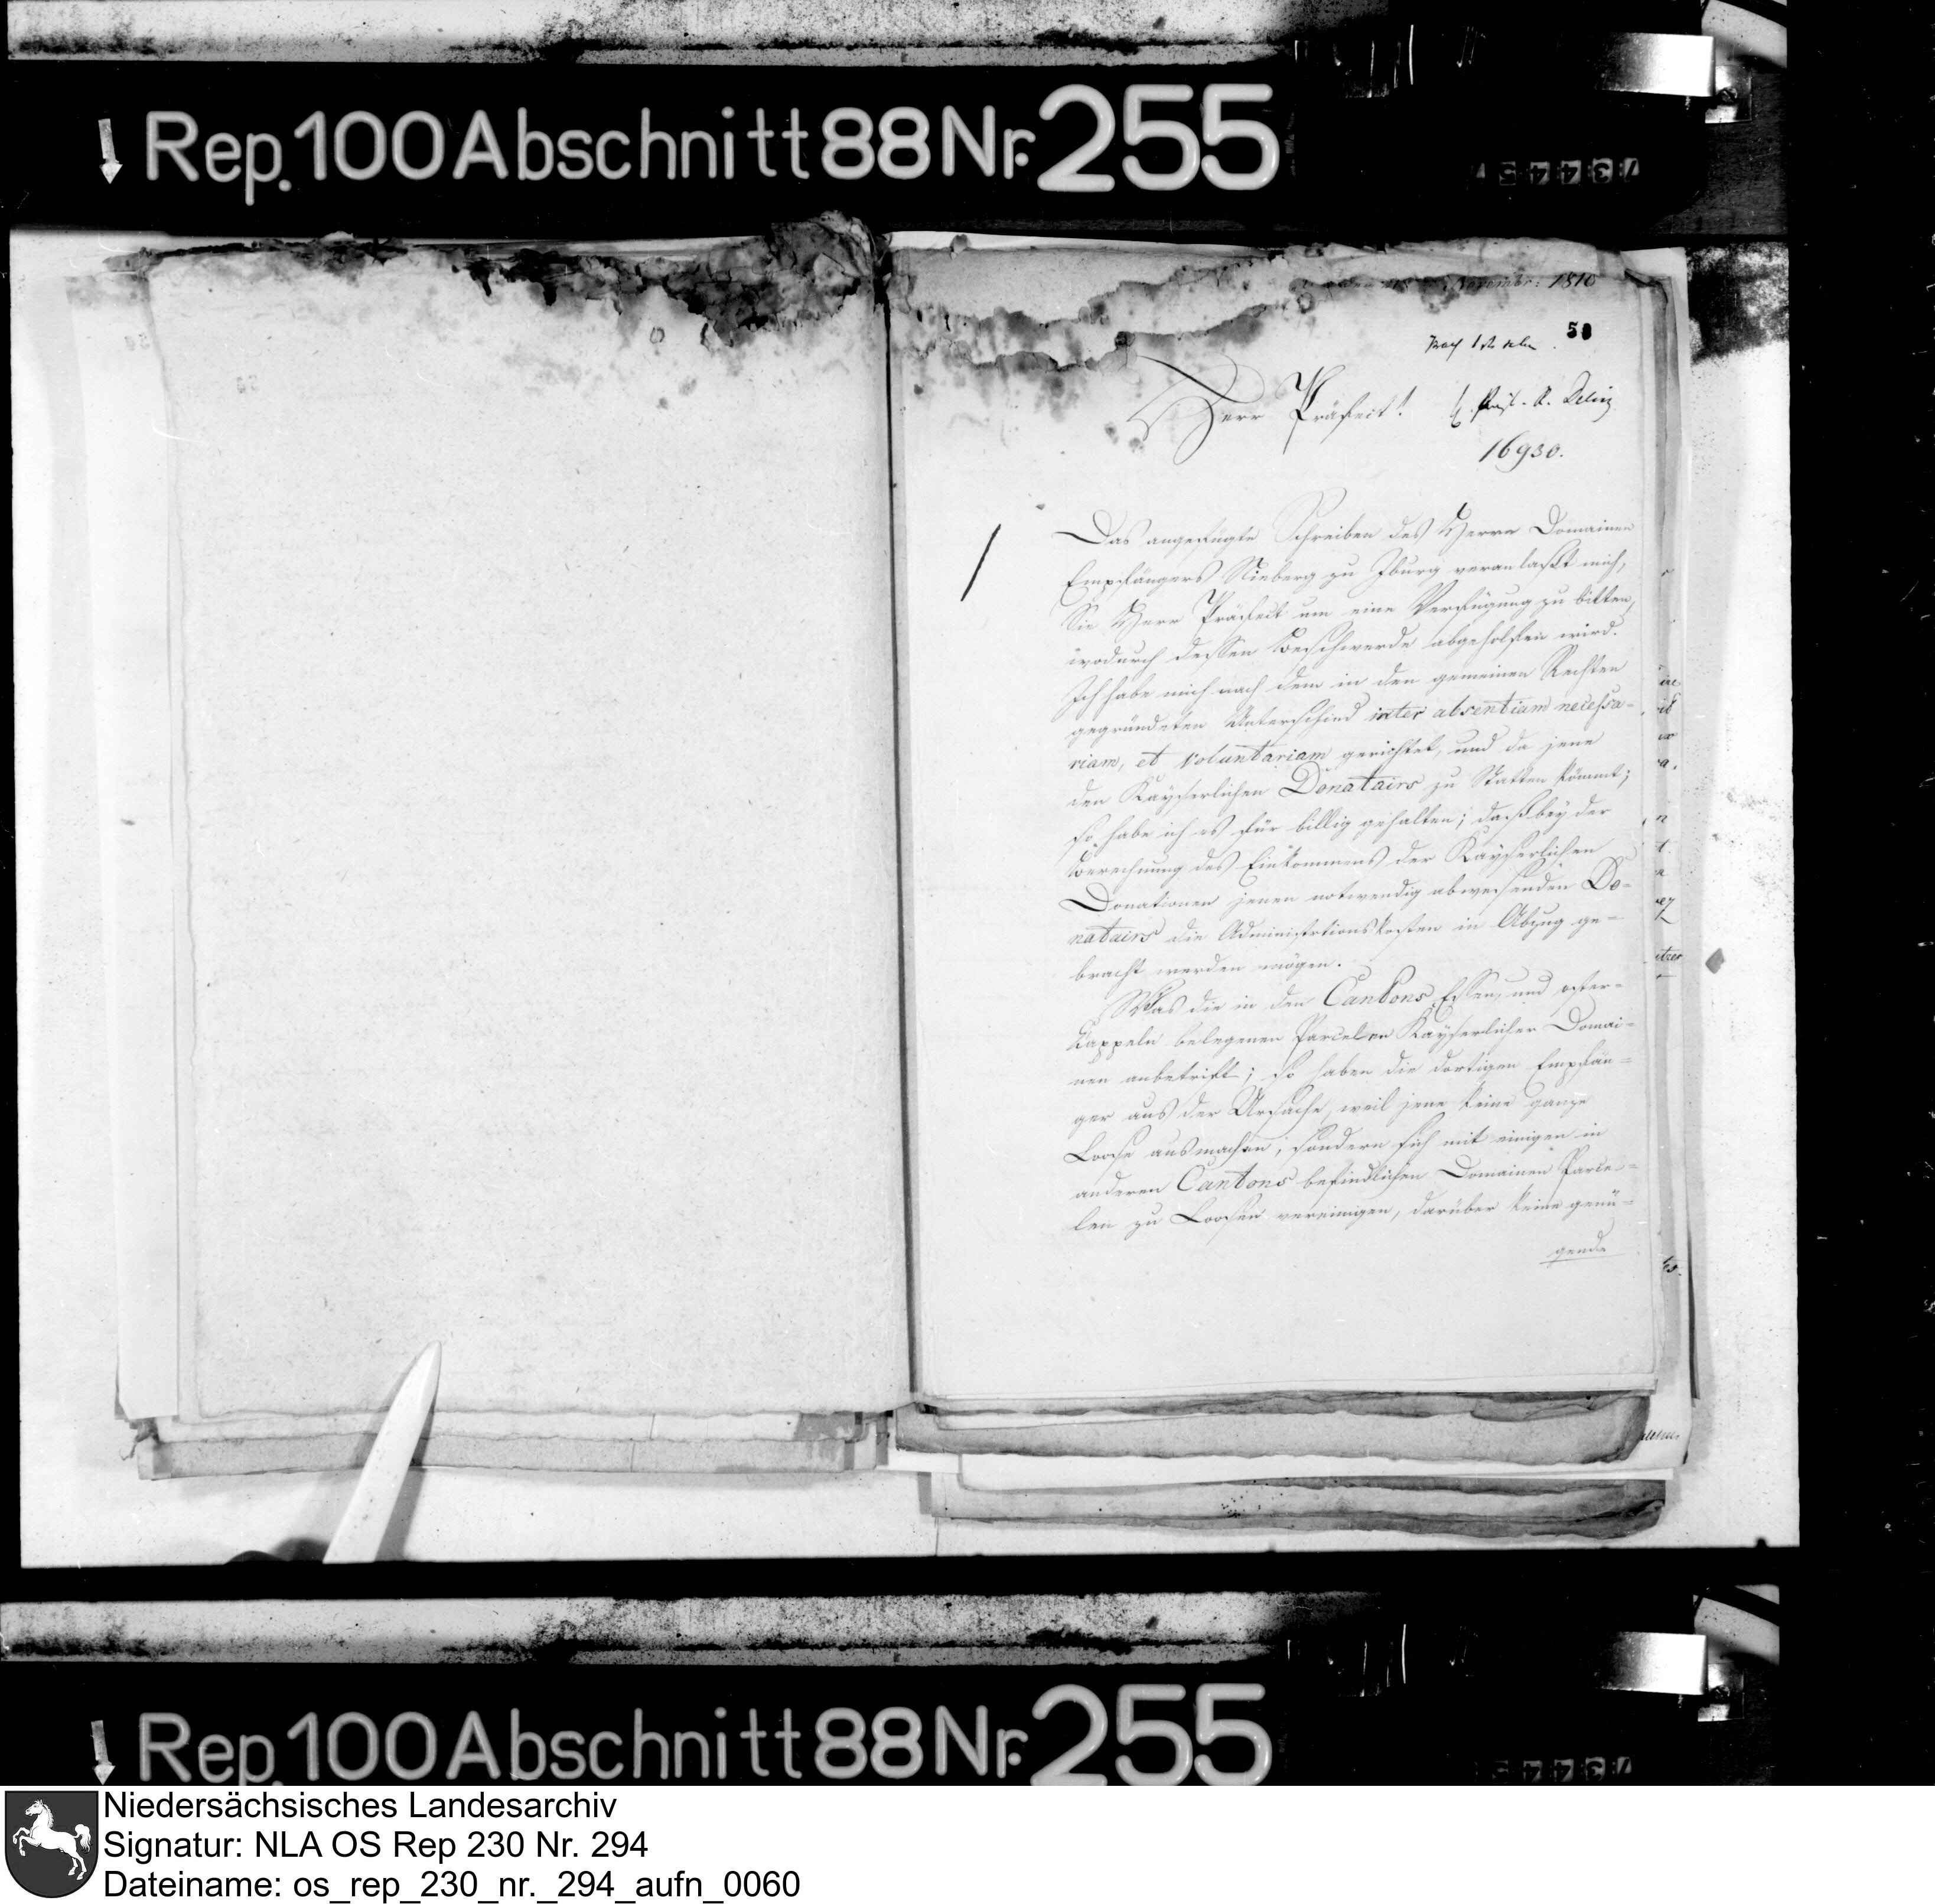 Rep. 100 Abschnitt 88 Nr. 255
734457
Novembr: 1810
50
Herr Präfect!
16930.
Das angefügte Schreiben des Herrn Domainen
Empfängers Nieberg zu Iburg veranlaßt mich,
Sie Herr Präfect um eine Verfügung zu bitten,
wodurch dessen Beschwerde abgeholfen wird.
Ich habe mich nach dem in den gemeinen Rechten
gegründeten Unterschied inter absentiam necessa-
riam, et voluntariam gerichtet, und da jene
den Kayserlichen Donatairs zu Statten kömmt;
so habe ich es für billig gehalten; daß bey der
Berechnung des Einkommens der Kayserlichen
Donationen jenen notwendig abwesenden Do-
natairs die Administrtionskosten in Abzug ge-
bracht werden mögen.
Was die in den Cantons Essen, und oster-
kappeln belegenen Parcelen Kayserlicher Domai-
nen anbetrift; so haben die dortigen Empfän-
ger aus der Ursache, weil jene keine ganze
Loose ausmachen; sondern sich mit einigen in
anderen Cantons befindlichen Domainen Parce-
len zu Loosen vereinigen, darüber keine genü-
gende
Rep. 100 Abschnitt 88 Nr. 255
Niedersächsisches Landesarchiv
Signatur: NLA OS Rep 230 Nr. 294
Dateiname: os_rep_230_nr._294_aufn_0060